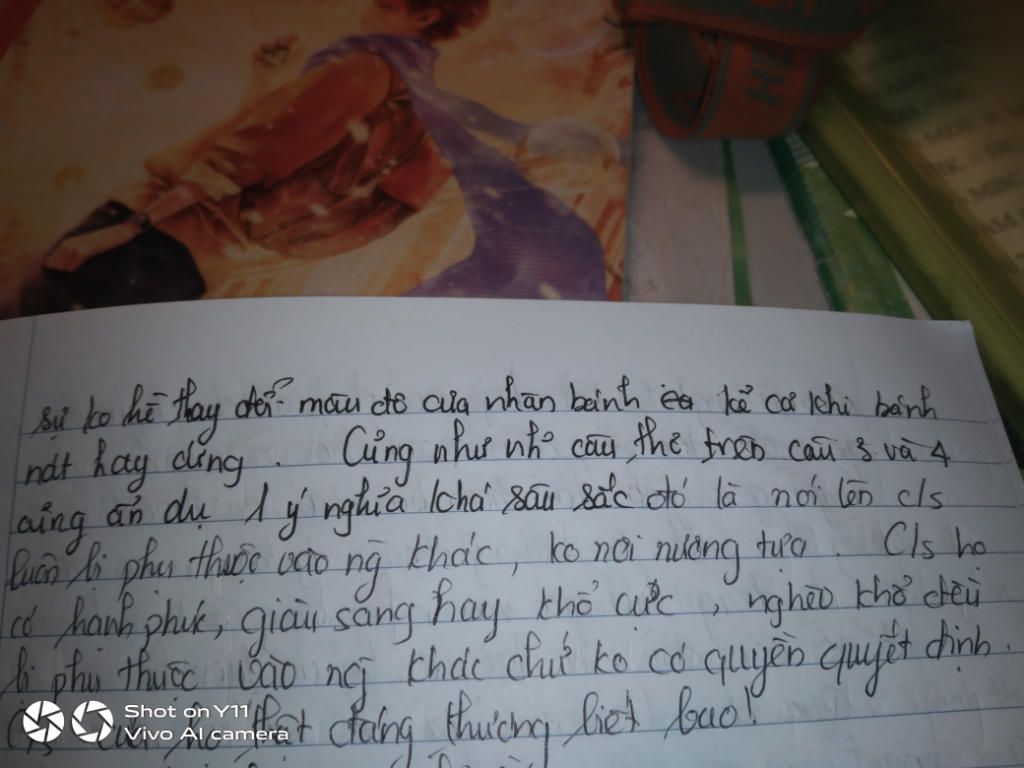 sự ko hề thay đổi màu đỏ của nhân bánh kể cả khi bánh
nát hay cứng. Cũng như nh~ câu thơ trên câu 3 và 4
cũng ẩn dụ 1 ý nghĩa khá sâu sắc đó là nói lên c/s
luôn bị phụ thuộc vào ng~ khác, ko nơi nương tựa. C/s họ
có hạnh phúc, giàu sang hay khổ cực, nghèo khổ đều
bị phụ thuộc vào ng~ khác chứ ko có quyền quyết định.
thật đáng thương biết bao!
Shot on Y11
Vivo AI camera